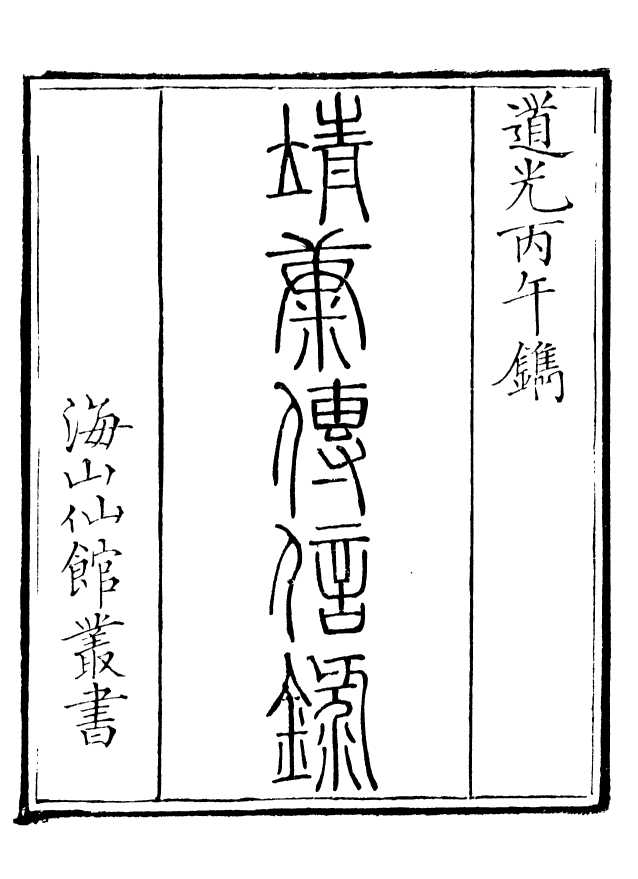 道光丙午鐫
靖康傳信錄
海山仙館叢書